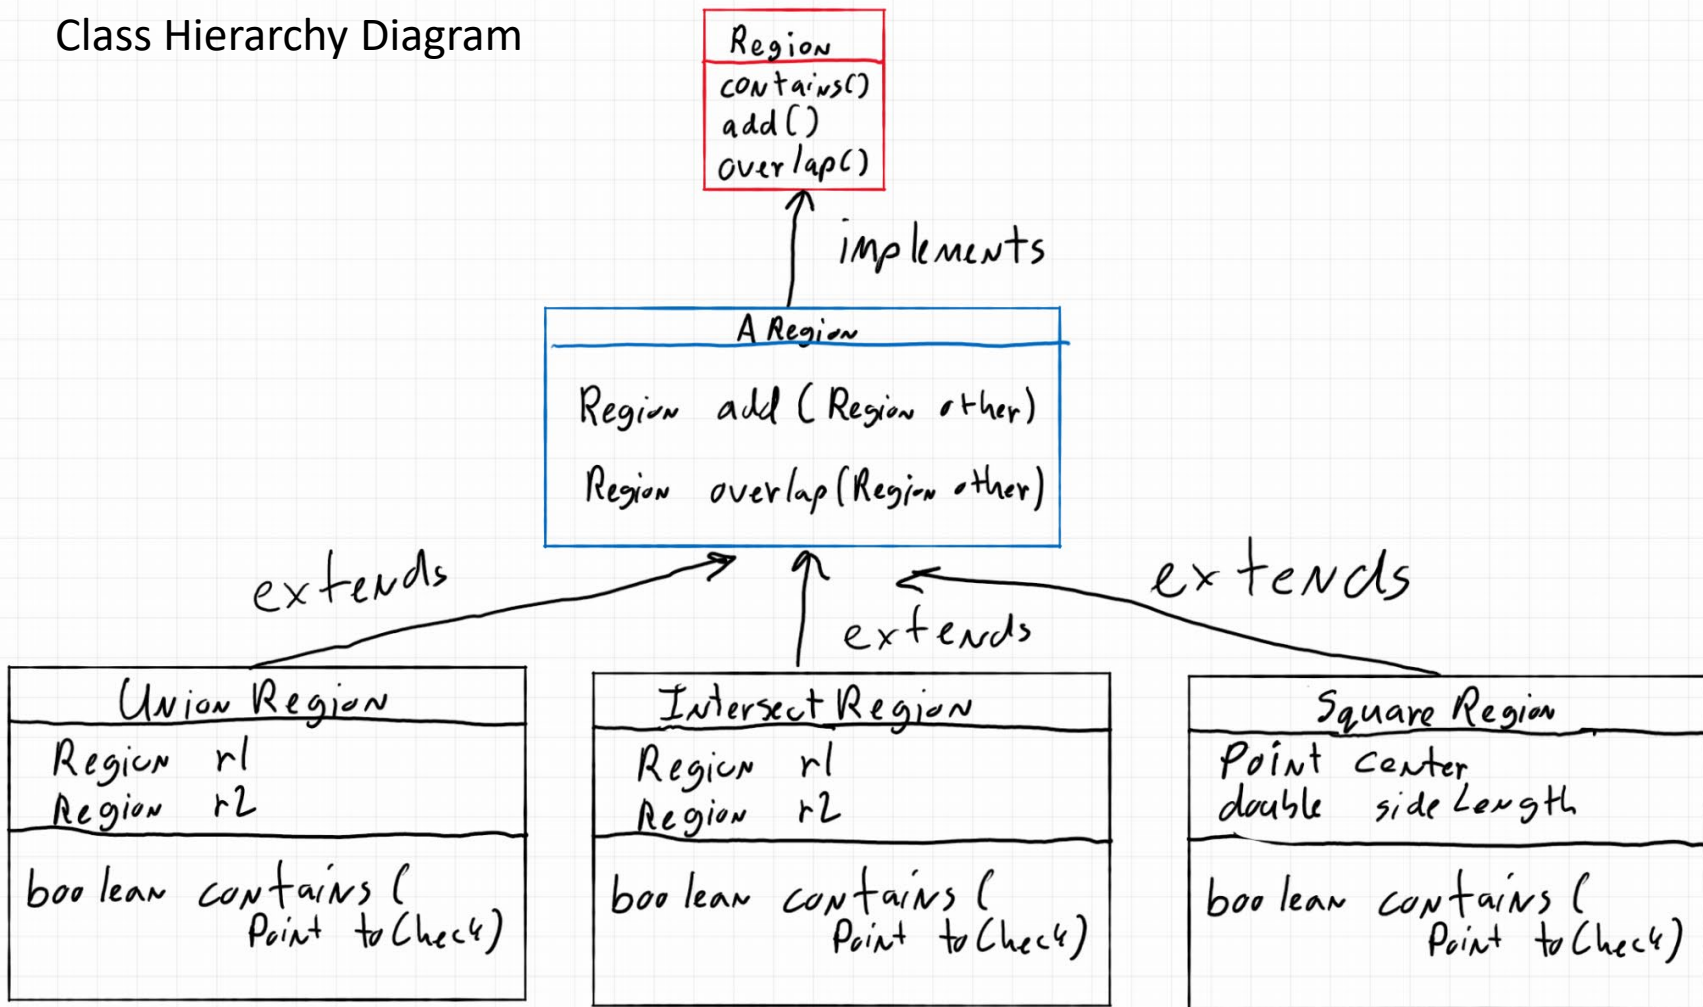 Class Hierarchy Diagram
Region
contains()
add()
overlap()
implements
A Region
Region add (Region other)
Region overlap (Region other)
extends
extends
extends
Union Region
Region r1
Region r2
boolean contains (
Point toCheck)
Intersect Region
Region r1
Region r2
boolean contains (
Point toCheck)
Square Region
Point center
double sideLength
boolean contains (
Point toCheck)